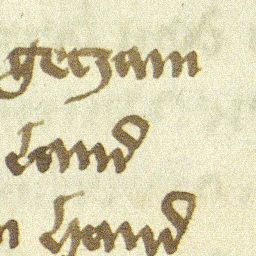 getzam
land
n hand